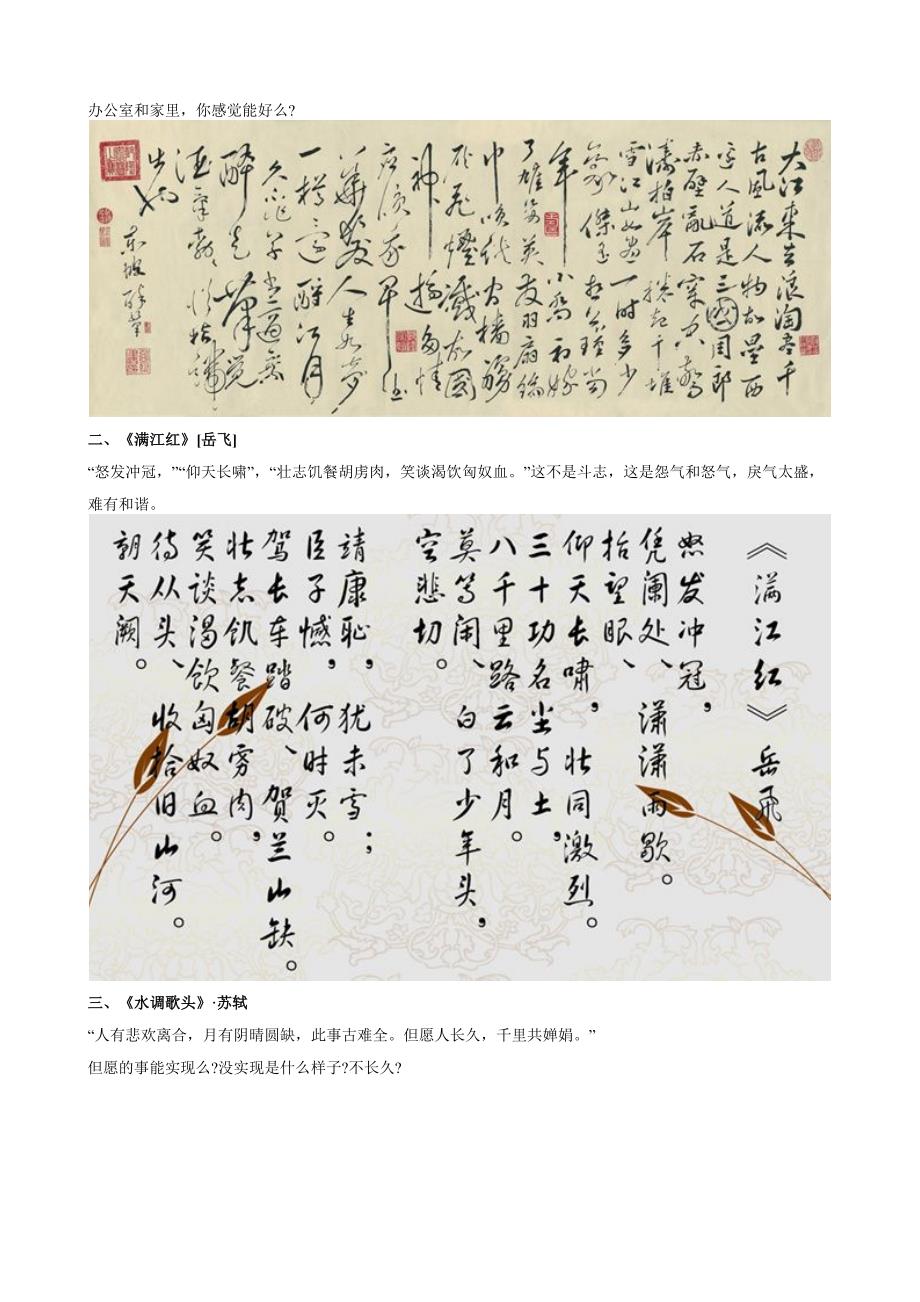 办公室和家里，你感觉能好么?
大江東去浪淘盡千
古風流人物故壘西
邊人道是三國周郎
赤壁亂石穿空驚
濤拍岸捲起千堆
雪江山如畫一時多少
豪傑遙想公瑾當
年小喬初嫁
了雄姿英發羽扇綸
巾
灰飛煙滅故國
神遊多情
應笑我早生
華髮人生如夢
一樽還酹江月
久不作草書適乘
醉走筆覺
酒氣勃勃從指端
出也
東坡醉筆
二、《满江红》[岳飞]
“怒发冲冠，”“仰天长啸”，“壮志饥餐胡虏肉，笑谈渴饮匈奴血。”这不是斗志，这是怨气和怒气，戾气太盛，
难有和谐。
《满江红》岳飞
怒发冲冠，
凭阑处、潇潇雨歇。
抬望眼、
仰天长啸，壮同激烈。
三十功名尘与土，
八千里路云和月。
莫等闲、白了少年头，
空悲切。
靖康耻，犹未雪；
臣子憾，何时灭。
驾长车踏破、贺兰山缺。
壮志饥餐胡虏肉，
笑谈渴饮匈奴血。
待从头、收拾旧山河。
朝天阙。
三、《水调歌头》·苏轼
“人有悲欢离合，月有阴晴圆缺，此事古难全。但愿人长久，千里共婵娟。”
但愿的事能实现么?没实现是什么样子?不长久?